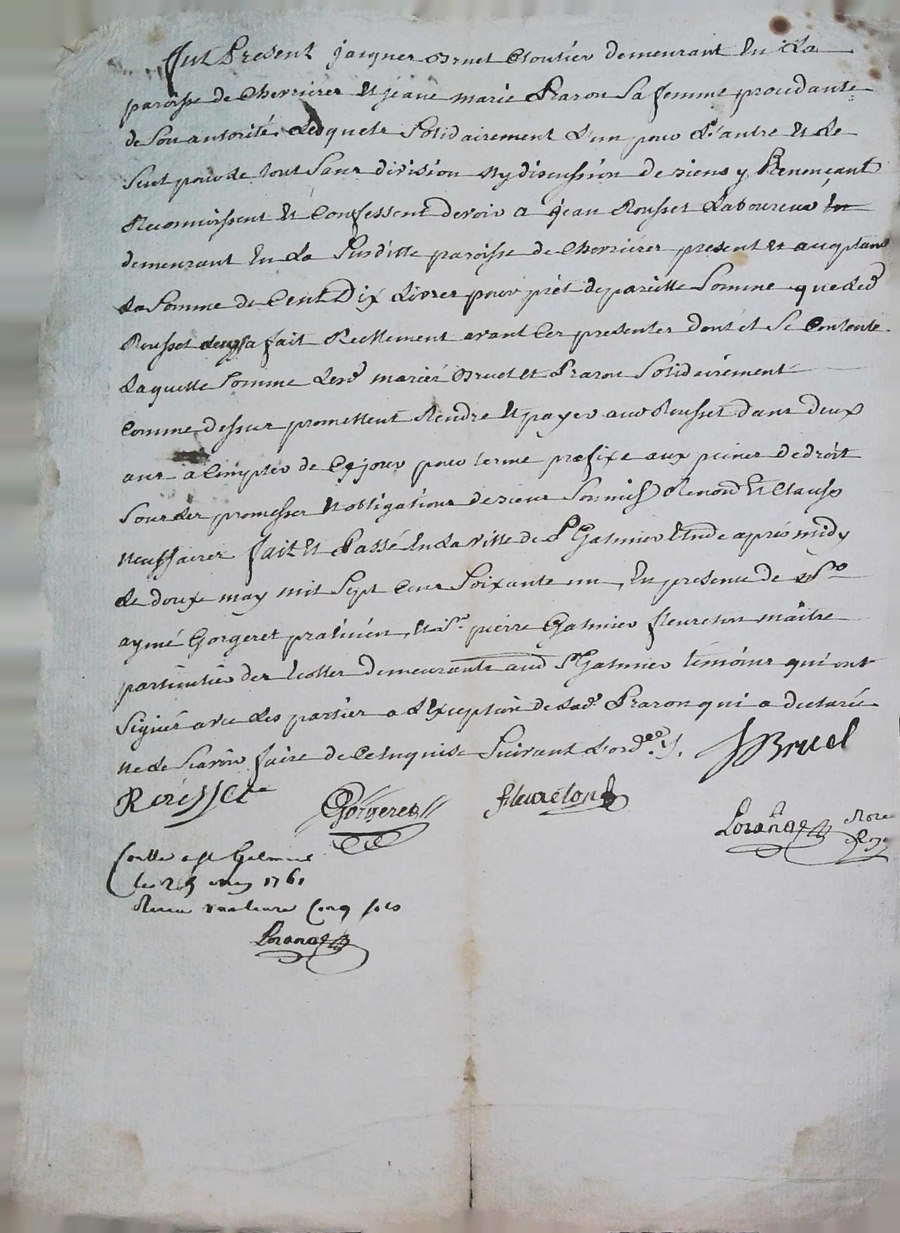 Fut Present jacques Bruel Cloutier demeurant En La
paroisse de Chevrieres Et jeane marie Praron Sa femme procedante
de Son autorité Lesquels Solidairement L'un pour L'autre Et Le
Seul pour le tout Sans division Ny discussion de biens y Renonçant
Reconnoissent Et Confessent devoir a jean Rousset Laboureur
demeurant En La Susditte paroisse de Chevrieres present Et acceptant
La Somme de Cent Dix Livres pour prêt de pareille Somme que Led
Rousset a fait Reellement avant Ces presentes dont il Se Contente
Laquelle Somme Lesd mariés Bruel et Praron Solidairement
Comme dessus promettent Rendre Et payer aud Rousset dans deux
ans a Compter de Cejour pour terme prefixe aux peines de droit
Sous Les promesses Et obligations de biens Soumis Renond Et Clauses
Necessaires fait Et Passé En La ville de St Galmier Etude après midy
Le douze may mil Sept Cens Soixante un, En presence de
aymé Gorgeret praticien, Et Sr pierre Galmier fleureton maître
particulier des Ecolles demeurants aud St Galmier temoins qui ont
Signés avec Les parties a L'Exception de Lad Praron qui a declarée
Ne Le Scavoir faire de Ce Enquise Suivant L'ordce
J Bruel
Rousset
Gorgeret
fleureton
Nore
Roy
Conlle a St Galmier
le 25 may 1761
Receu cinq sols